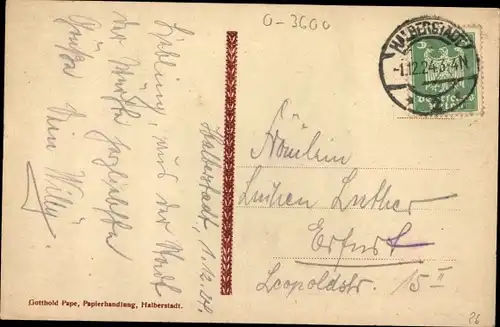 O-3600
HALBERSTADT
-1.12.24.3-4N
Halberstadt, 1.12.24.
Liebling, aus der Stadt
der Würste herzlichste
Grüße Dein Willy.
Fräulein
Luther
Erfurt
Leopoldstr. 15 II
Gotthold Pape, Papierhandlung, Halberstadt.
26